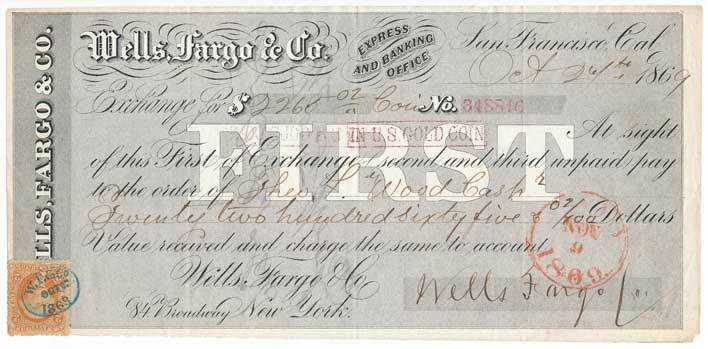 WELLS, FARGO & CO.
Wells, Fargo & Co.
EXPRESS
AND BANKING
OFFICE
San Francisco, Cal
Oct 26th 1869
Exchange for $ 2265 02 Coin No.
IN U.S. GOLD COIN
FIRST
At sight
of this First of Exchange, second and third unpaid pay
to the order of Theo F. Wood Cashr
Twenty two hundred sixty five & 02/100 Dollars
Value received and charge the same to account
NOV
9
1869
Wells Fargo & Co
84 Broadway New York.
Wells Fargo
1869